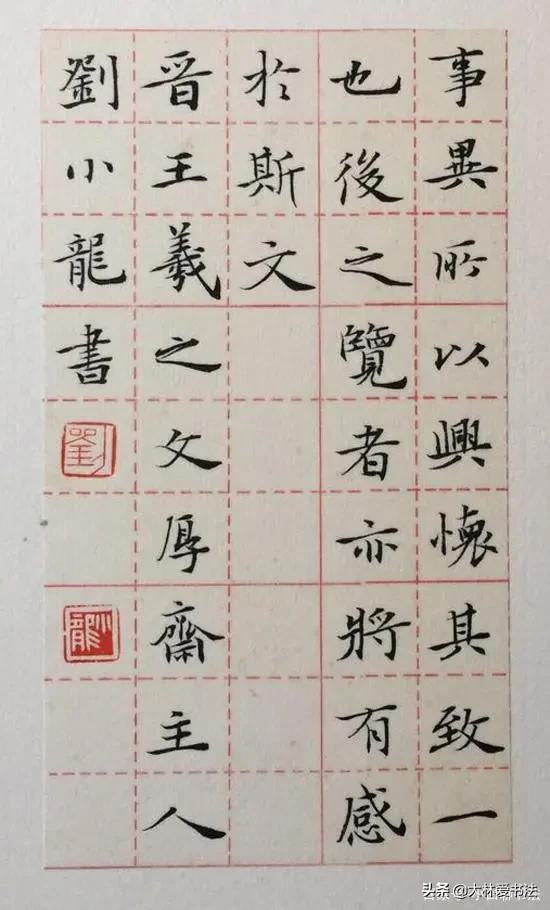 事異所以興懷其致一
也後之覽者亦將有感
於斯文
晉王羲之文厚齋主人
劉小龍書
劉
小龍
头条 @大林爱书法